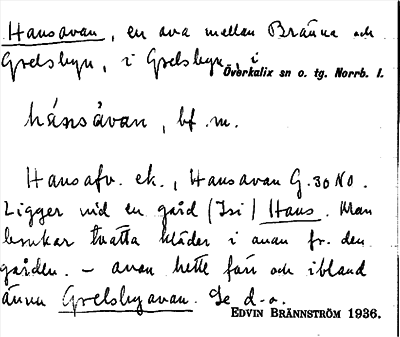 Hansavan, en ava mellan Bränna och
Grelsbyn, i Grelsbyn, i
Överkalix sn o. tg. Norrb. l.
hánsàvan, bf. m.
Hansafv. ek., Hansavan G.30 NO.
Ligger vid en gård (Isi) Hans. Man
brukar tvätta kläder i avan fr. den
gården. – avan hette förr och ibland
ännu Grelsbyavan. Se d.o.
EDVIN BRÄNNSTRÖM 1936.